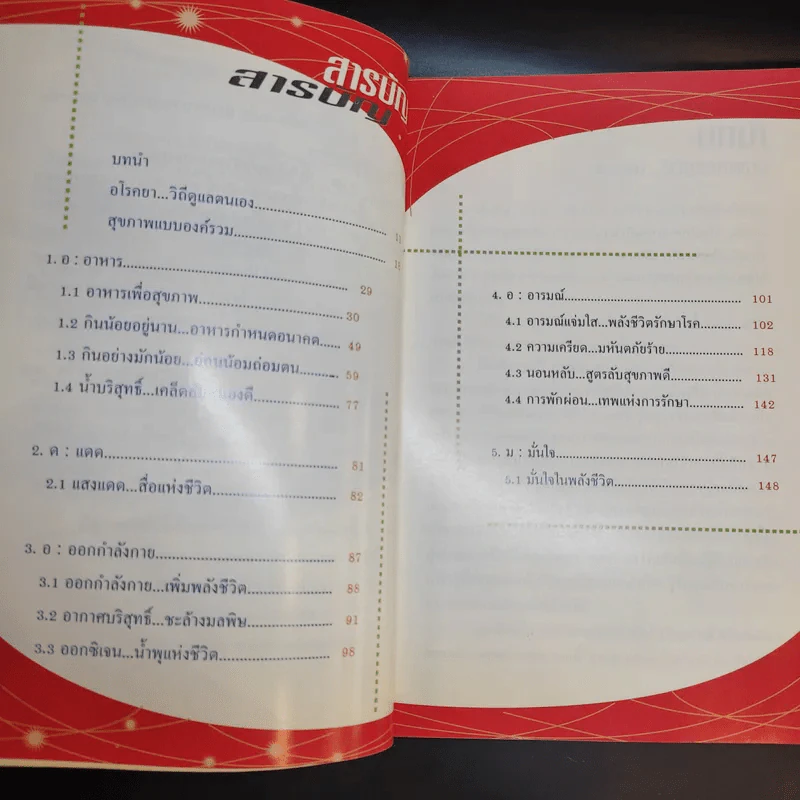 สารบัญ
สารบัญ
บทนำ
อโรคยา...วิถีดูแลตนเอง
สุขภาพแบบองค์รวม
1. อ : อาหาร 29
1.1 อาหารเพื่อสุขภาพ 30
1.2 กินน้อยอยู่นาน...อาหารกำหนดอนาคต 49
1.3 กินอย่างมักน้อย...อ่อนน้อมถ่อมตน 59
1.4 น้ำบริสุทธิ์...เคล็ดลับ 77
2. ด : แดด 81
2.1 แสงแดด...สื่อแห่งชีวิต 82
3. อ : ออกกำลังกาย 87
3.1 ออกกำลังกาย...เพิ่มพลังชีวิต 88
3.2 อากาศบริสุทธิ์...ชะล้างมลพิษ 91
3.3 ออกซิเจน...น้ำพุแห่งชีวิต 98
4. อ : อารมณ์ 101
4.1 อารมณ์แจ่มใส...พลังชีวิตรักษาโรค 102
4.2 ความเครียด...มหันตภัยร้าย 118
4.3 นอนหลับ...สูตรลับสุขภาพดี 131
4.4 การพักผ่อน...เทพแห่งการรักษา 142
5. ม : มั่นใจ 147
5.1 มั่นใจในพลังชีวิต 148